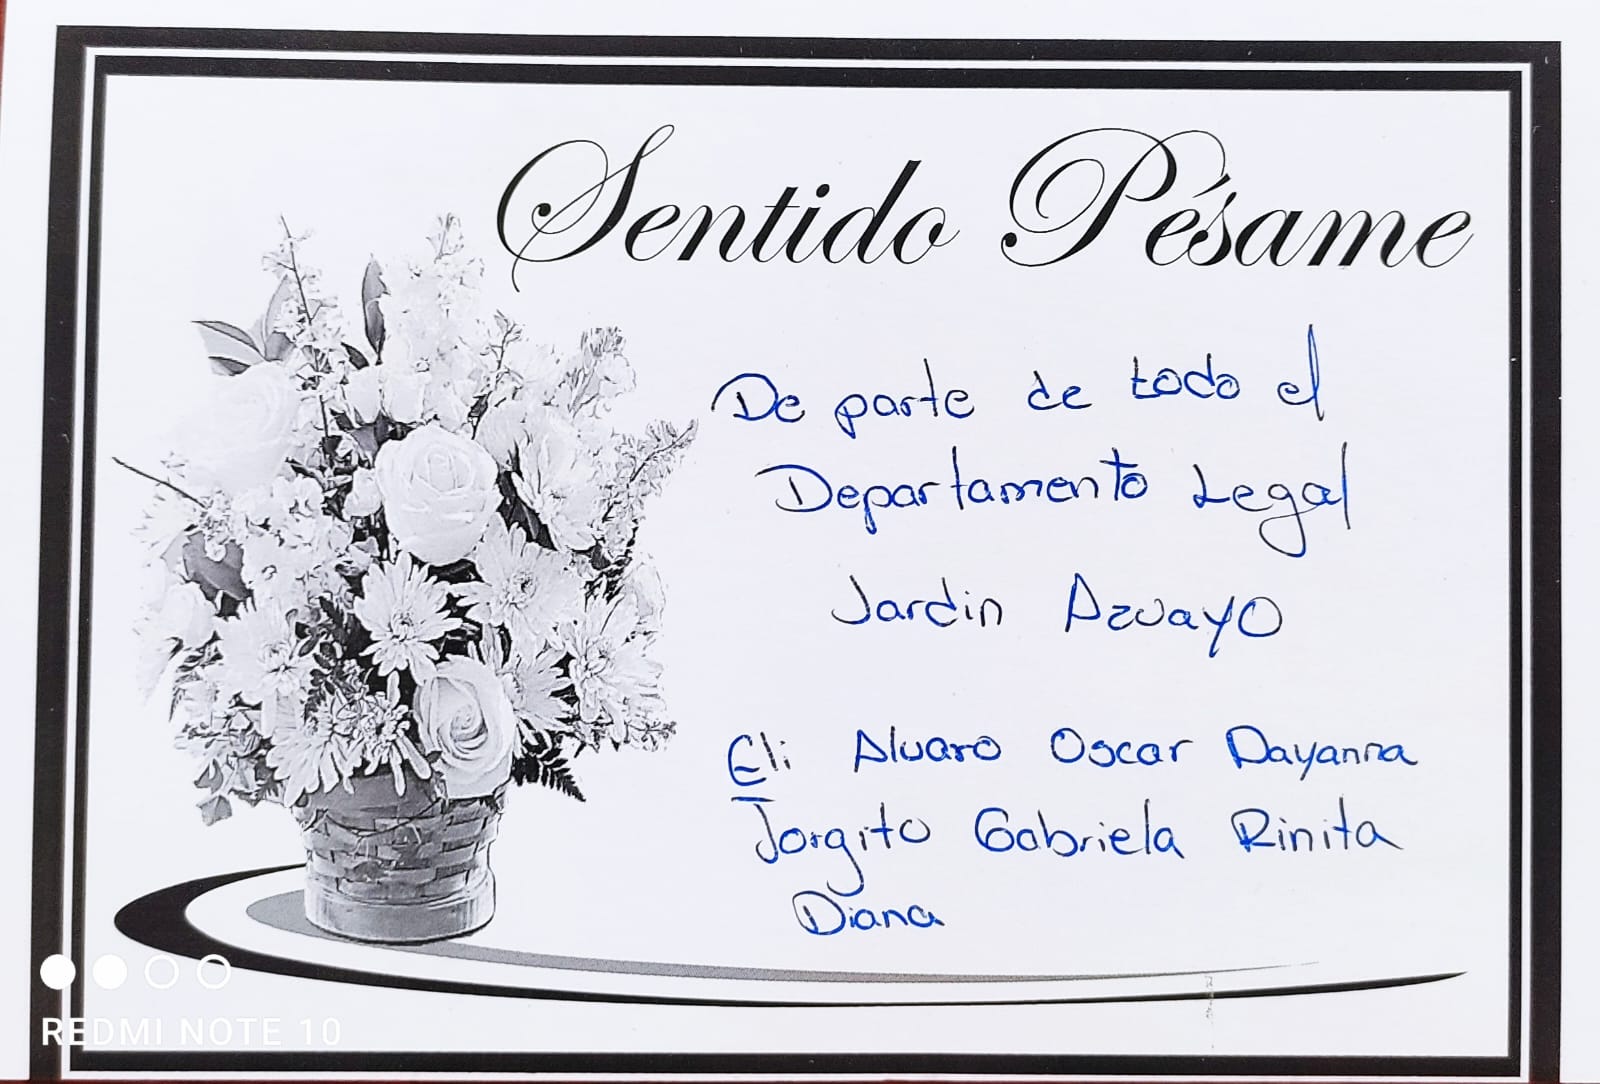 Sentido Pésame
De parte de todo el
Departamento Legal
Jardin Azuayo
Eli Alvaro Oscar Dayanna
Jorgito Gabriela Rinita
Diana
REDMI NOTE 10